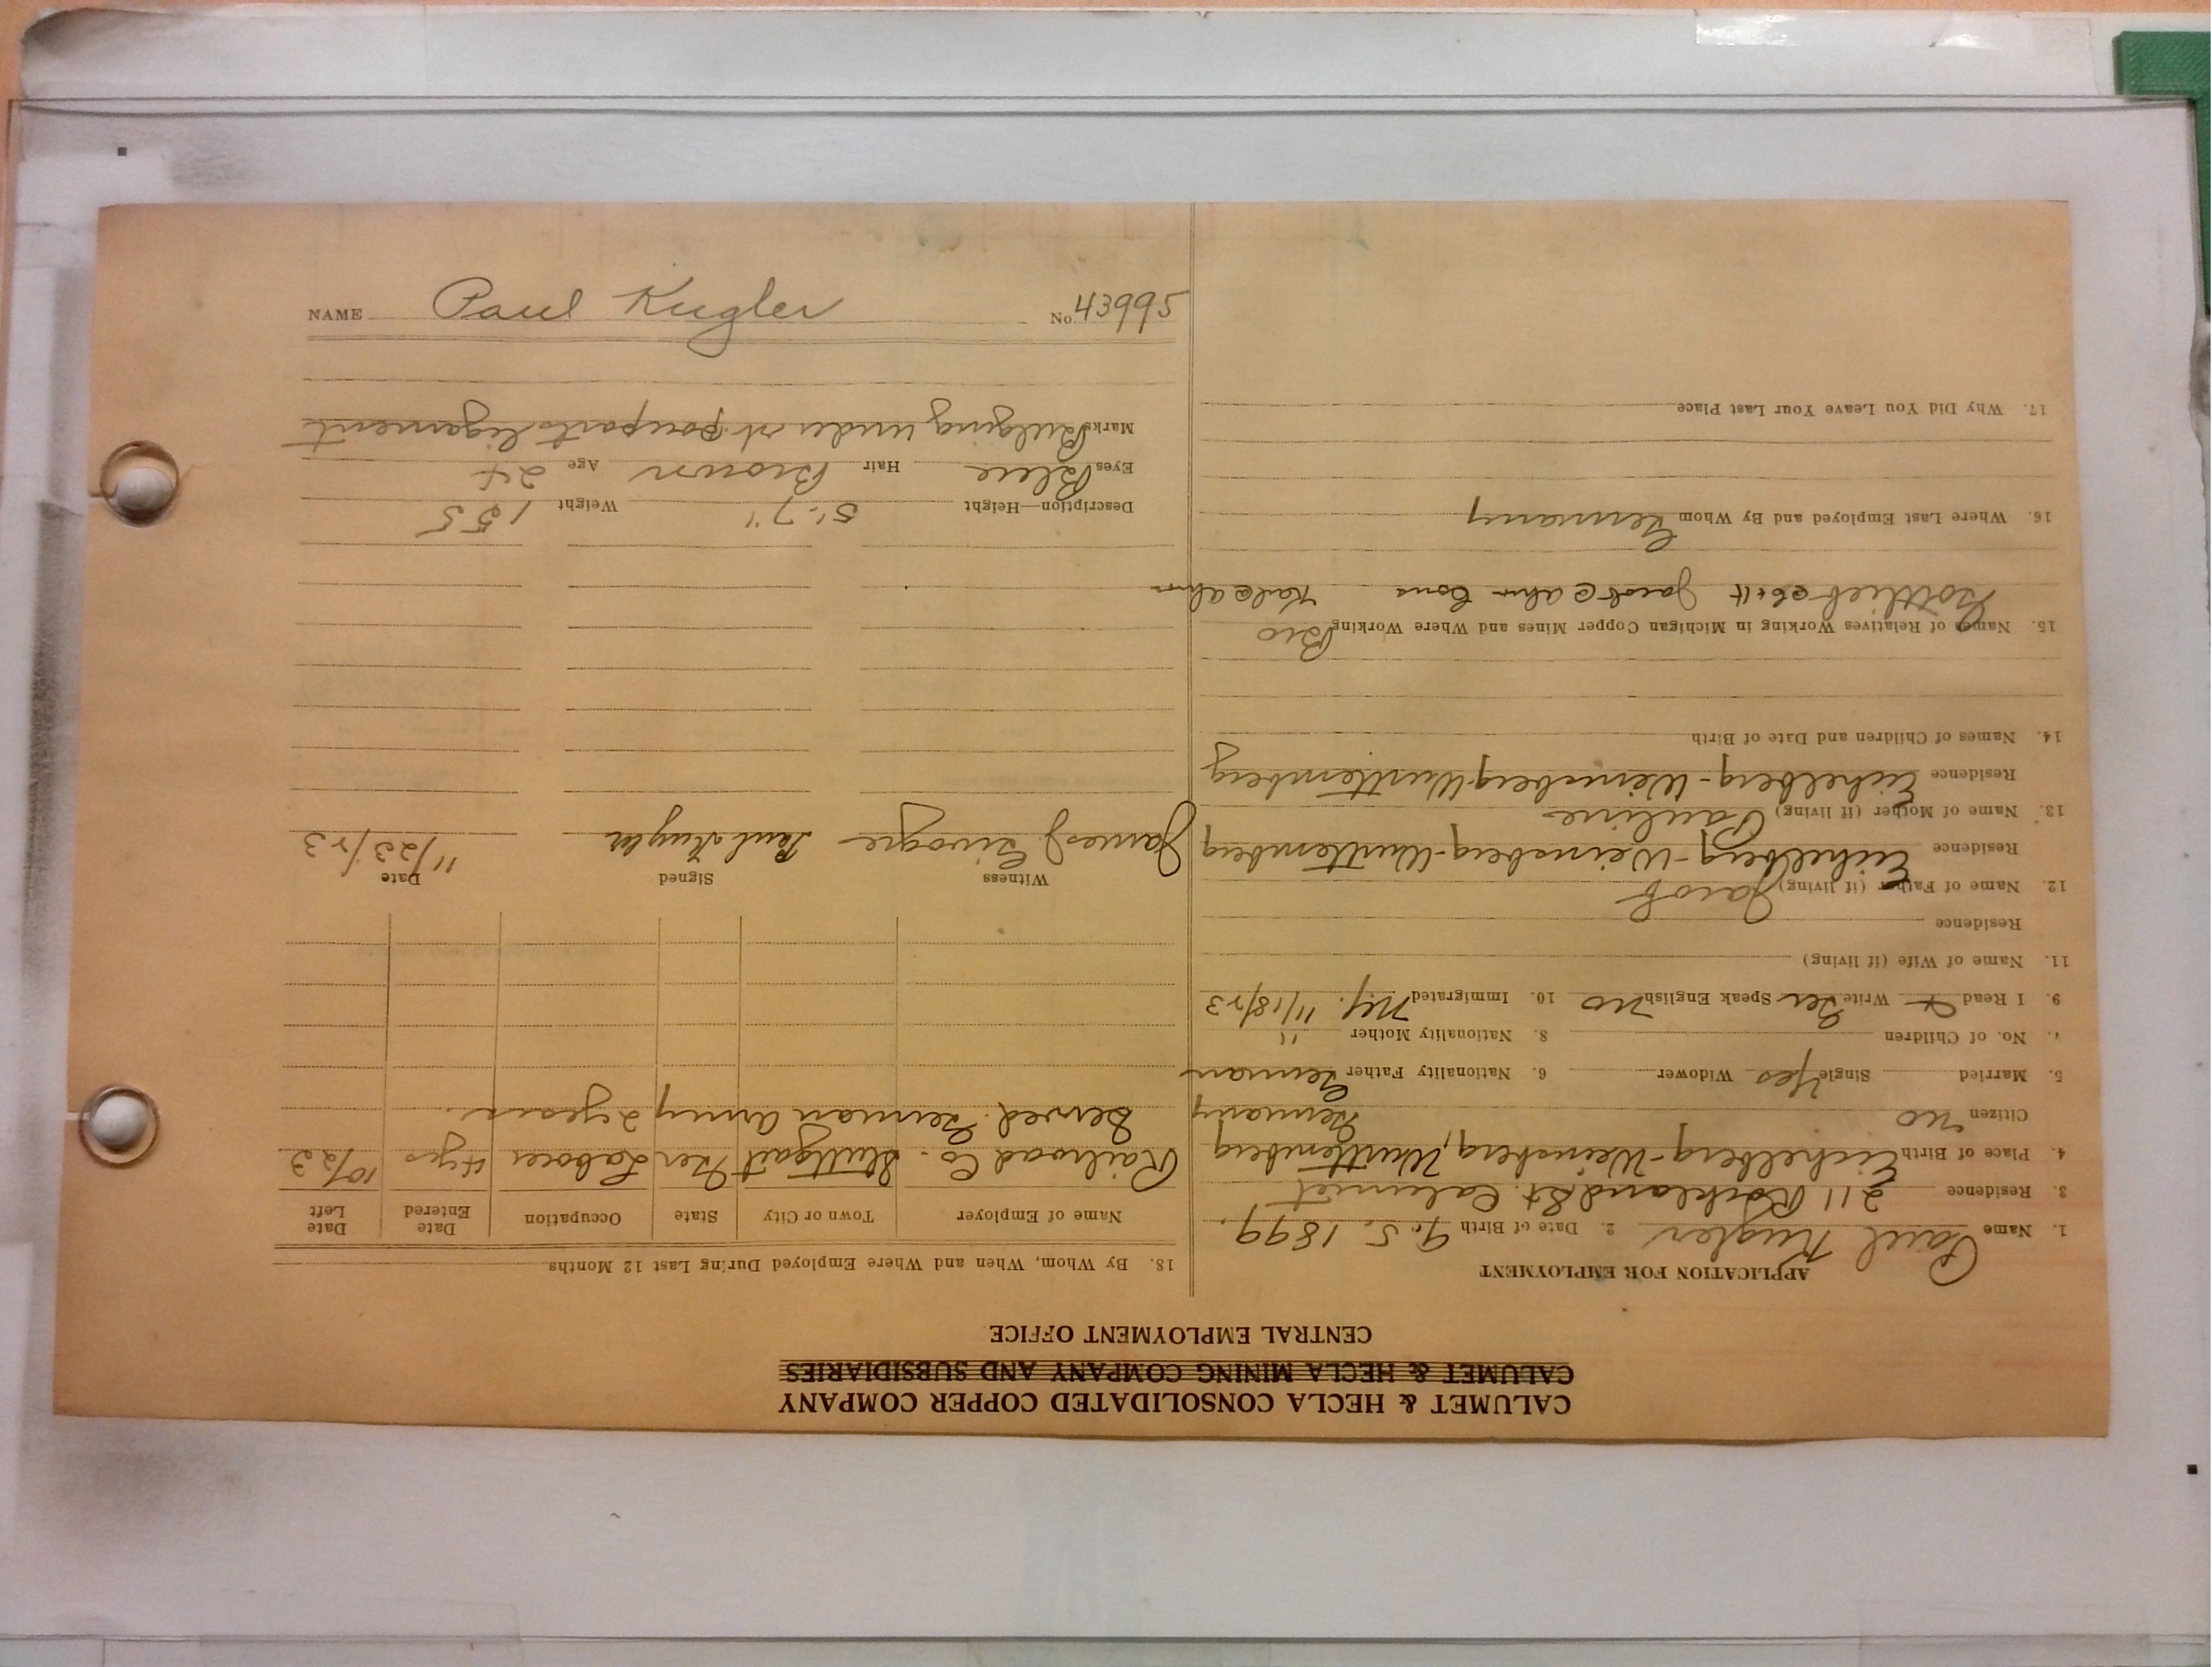 NAME Paul Kugler No. 43995
CALUMET & HECLA CONSOLIDATED COPPER COMPANY
CALUMET & HECLA MINING COMPANY AND SUBSIDIARIES
CENTRAL EMPLOYMENT OFFICE
APPLICATION FOR EMPLOYMENT
1. Name Paul Kugler 2. Date of Birth 9.5.1899.
3. Residence 211 Rockland St. Calumet
4. Place of Birth Eichelberg-Weinsberg, Wurttemberg
Germany
Citizen no
5. Married Single Yes Widower 6. Nationality Father German
7. No. of Children 8. Nationality Mother "
9. I Read & Write Ger Speak English no 10. Immigrated 11/18/23
11. Name of Wife (if living)
Residence
12. Name of Father (if living) Jacob
Residence Eichelberg-Weinsberg-Wurttemberg
13. Name of Mother (if living) Pauline
Residence Eichelberg-Weinsberg-Wurttemberg
14. Names of Children and Date of Birth
15. Names of Relatives Working in Michigan Copper Mines and Where Working Bro
Gottlieb Jacob Cous
16. Where Last Employed and By Whom Germany
17. Why Did You Leave Your Last Place
18. By Whom, When and Where Employed During Last 12 Months
Name of Employer Town or City State Occupation Date Entered Date Left
Railroad Co. Stuttgart Ger Laborer 4 yrs 10/23
Served German army 2 years.
Witness Signed Date
James J Paul Kugler 11/23/23
Description—Height 5'-7" Weight 155
Eyes Blue Hair Brown Age 24
Marks Bulging under rt pouparts ligament